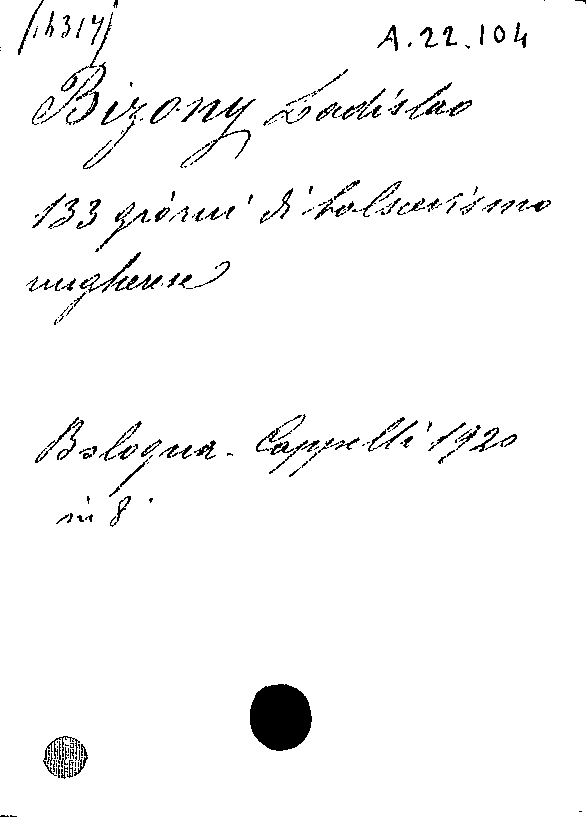 (14317)
A.22.104
Bizony Ladislao
133 giorni di bolscevismo
ungherese
Bologna - Cappelli 1920
in 8°